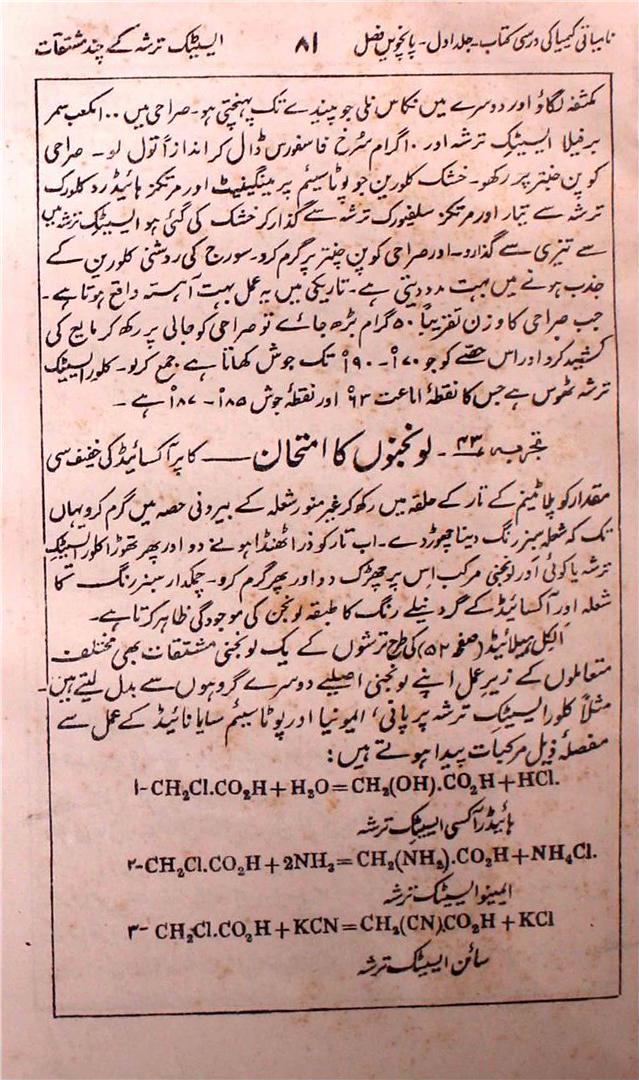 نامیاتی کیمیا کی درسی کتاب - جلد اول - پانچویں فصل ۸۱ ایسیٹک ترشہ کے چند مشتقات
مکثفہ لگاؤ اور دوسرے میں نکاس نلی جو پیندے تک پہنچتی ہو۔ صراحی میں ۱۰۰ مکعب سمر
برفیلا ایسیٹک ترشہ اور ۱۰ گرام سُرخ فاسفورس ڈال کر اندازاً تول لو۔ صراحی
کو پن جنتر پر رکھو۔ خشک کلورین جو پوٹاسیئم پرمینگینیٹ اور مرتکز ہائیڈرو کلورک
ترشہ سے تیار اور مرتکز سلفیورک ترشہ سے گذار کر خشک کی گئی ہو ایسیٹک ترشہ میں
سے تیزی سے گذارو۔ اور صراحی کو پن جنتر پر گرم کرو۔ سورج کی روشنی کلورین کے
جذب ہونے میں بہت مدد دیتی ہے۔ تاریکی میں یہ عمل بہت آہستہ واقع ہوتا ہے۔
جب صراحی کا وزن تقریباً ۵۰ گرام بڑھ جائے تو صراحی کو جالی پر رکھ کر مایع کی
کشید کرو اور اس حصّے کو جو ۱۷۰°م - ۱۹۰°م تک جوش کھاتا ہے جمع کرلو۔ کلور ایسیٹک
ترشہ ٹھوس ہے جس کا نقطۂ اماعت ۶۳°م اور نقطۂ جوش ۱۸۵°م - ۱۸۷°م ہے۔
تجربہ ۴۳ - لونجنوں کا امتحان — کاپر آکسائیڈ کی خفیف سی
مقدار کو پلاٹینم کے تار کے حلقہ میں رکھ کر غیر منور شعلہ کے بیرونی حصہ میں گرم کرو یہاں
تک کہ شعلہ سبز رنگ دینا چھوڑ دے۔ اب تار کو ذرا ٹھنڈا ہونے دو اور پھر تھوڑا کلور ایسیٹک
ترشہ یا کوئی اَور لونجنی مرکب اس پر چھڑک دو اور پھر گرم کرو۔ چمکدار سبز رنگ کا
شعلہ اور آکسائیڈ کے گرد نیلے رنگ کا طبقہ لونجن کی موجودگی ظاہر کرتا ہے۔
الکل ہیلائیڈ (صفحہ ۵۲) کی طرح ترشوں کے یک لونجنی مشتقات بھی مختلف
متعاملوں کے زیر عمل اپنے لونجنی اصلیے دوسرے گروہوں سے بدل لیتے ہیں۔
مثلاً کلور ایسیٹک ترشہ پر پانی، ایمونیا اور پوٹاسیئم سایانائیڈ کے عمل سے
مفصلۂ ذیل مرکبات پیدا ہوتے ہیں:
۱- CH₂Cl.CO₂H + H₂O = CH₂(OH).CO₂H + HCl.
ہائیڈر آکسی ایسیٹک ترشہ
۲- CH₂Cl.CO₂H + 2NH₃ = CH₂(NH₂).CO₂H + NH₄Cl.
ایمینو ایسیٹک ترشہ
۳- CH₂Cl.CO₂H + KCN = CH₂(CN).CO₂H + KCl
سائن ایسیٹک ترشہ